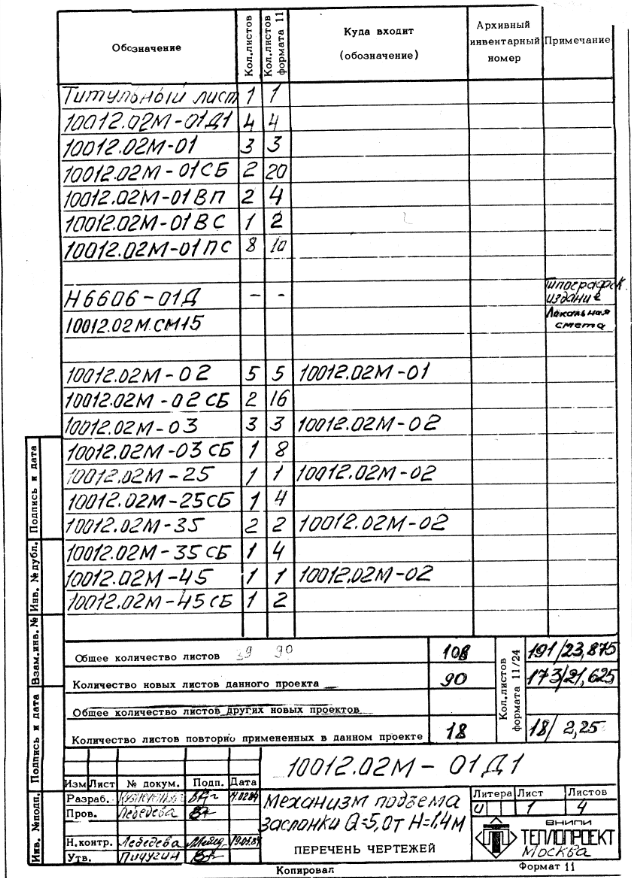 Обозначение Кол.листов Кол.листов формата 11 Куда входит (обозначение) Архивный инвентарный номер Примечание
Титульный лист 1 1
10012.02М-01Д1 4 4
10012.02М-01 3 3
10012.02М-01СБ 2 20
10012.02М-01ВП 2 4
10012.02М-01ВС 1 2
10012.02М-01ПС 8 10
Н6606-01Д - - Типографск. издание
10012.02М.СМ15 Локальная смета
10012.02М-02 5 5 10012.02М-01
10012.02М-02СБ 2 16
10012.02М-03 3 3 10012.02М-02
10012.02М-03СБ 1 8
10012.02М-25 1 1 10012.02М-02
10012.02М-25СБ 1 4
10012.02М-35 2 2 10012.02М-02
10012.02М-35СБ 1 4
10012.02М-45 1 1 10012.02М-02
10012.02М-45СБ 1 2
Общее количество листов 90 108 Кол.листов формата 11/24 191/23,875
Количество новых листов данного проекта 90 173/21,625
Общее количество листов других новых проектов
Количество листов повторно примененных в данном проекте 18 18/2,25
Инв. №подл. Подпись и дата Взам.инв.№ Инв. №дубл. Подпись и дата
10012.02М-01Д1
Изм Лист № докум. Подп. Дата
Разраб.
Пров. Лебедева
Н.контр. Лебедева
Утв. Пичугин
Механизм подъема
заслонки Q=5,0т Н=1,4м
ПЕРЕЧЕНЬ ЧЕРТЕЖЕЙ
Литера Лист Листов
И 1 4
ВНИПИ
ТЕПЛОПРОЕКТ
Москва
Копировал Формат 11